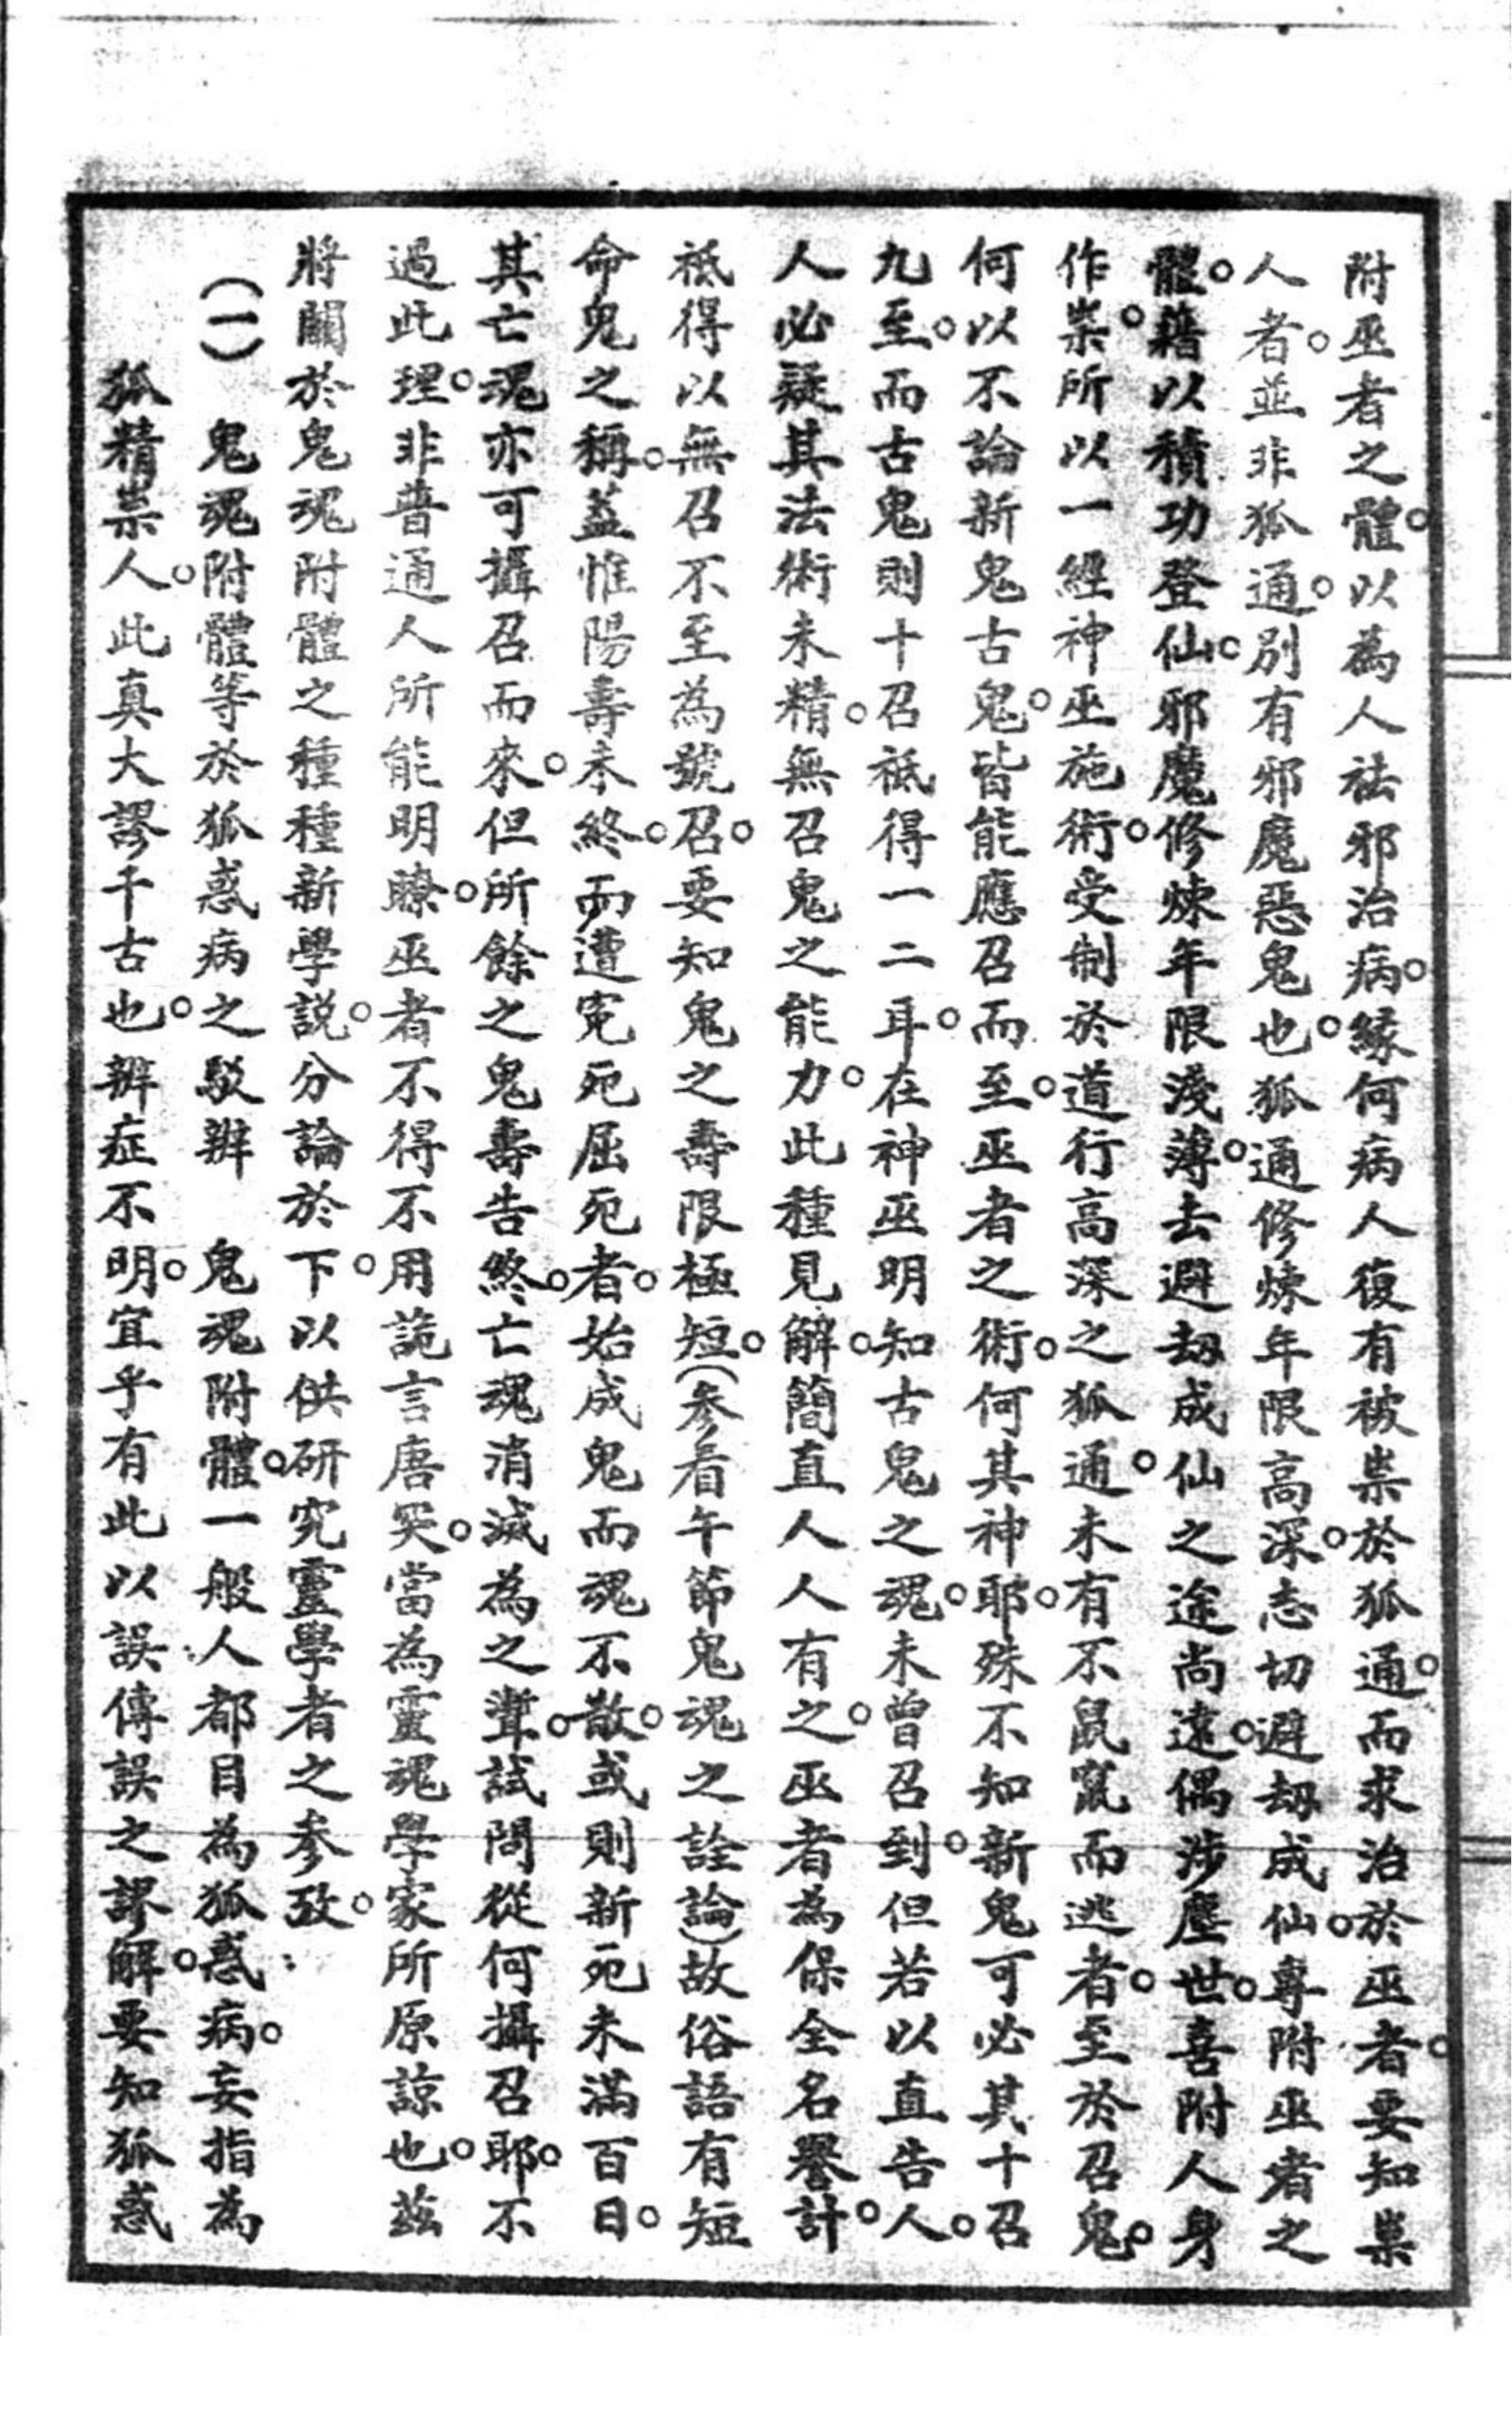 附巫者之體。以為人祛邪治病。緣何病人復有被祟於狐通。而求治於巫者。要知祟
人者。並非狐通。別有邪魔惡鬼也。狐通修煉年限高深。志切避劫成仙。專附巫者之
體。藉以積功登仙。邪魔修煉年限淺薄。去避劫成仙之途尚遠。偶涉塵世。喜附人身
作祟。所以一經神巫施術。受制於道行高深之狐通。未有不鼠竄而逃者。至於召鬼。
何以不論新鬼古鬼。皆能應召而至。巫者之術。何其神耶。殊不知新鬼可必其十召
九至。而古鬼則十召祗得一二耳。在神巫明知古鬼之魂。未曾召到。但若以直告人。
人必疑其法術未精。無召鬼之能力。此種見解。簡直人人有之。巫者為保全名譽計。
祗得以無召不至為號召。要知鬼之壽限極短。(參看午節鬼魂之詮論)故俗語有短
命鬼之稱。蓋惟陽壽未終。而遭冤死屈死者。始成鬼而魂不散。或則新死未滿百日。
其亡魂亦可攝召而來。但所餘之鬼壽告終。亡魂消滅為之聻。試問從何攝召耶。不
過此理。非普通人所能明瞭。巫者不得不用詭言唐突。當為靈魂學家所原諒也。茲
將關於鬼魂附體之種種新學說。分論於下。以供研究靈學者之參攷。
(一) 鬼魂附體等於狐惑病之駁辨 鬼魂附體。一般人都目為狐惑病。妄指為
狐精祟人。此真大謬千古也。辨症不明。宜乎有此以誤傳誤之謬解。要知狐惑